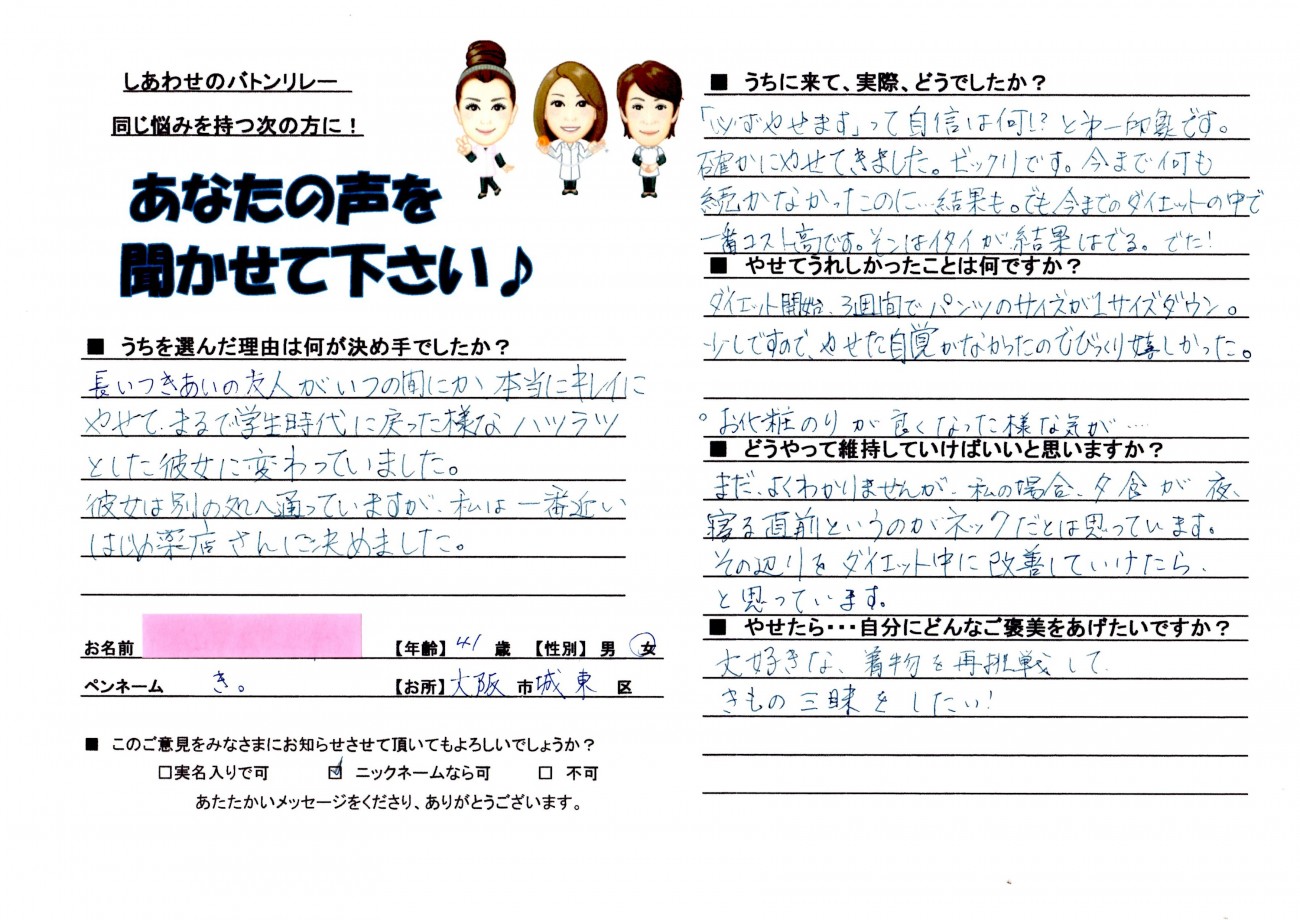 しあわせのバトンリレー
同じ悩みを持つ次の方に！
あなたの声を
聞かせて下さい♪
■ うちを選んだ理由は何が決め手でしたか？
長いつきあいの友人がいつの間にか本当にキレイに
やせて、まるで学生時代に戻った様なハツラツ
とした彼女に変わっていました。
彼女は別の処へ通っていますが、私は一番近い
はじめ薬店さんに決めました。
お名前 【年齢】 41 歳 【性別】 男 女
ペンネーム き。 【お所】 大阪 市 城東 区
■ このご意見をみなさまにお知らせさせて頂いてもよろしいでしょうか？
□実名入りで可 ☑ ニックネームなら可 □ 不可
あたたかいメッセージをくださり、ありがとうございます。
■ うちに来て、実際、どうでしたか？
「必ずやせます」って自信は何!? と第一印象です。
確かにやせてきました。ビックリです。今まで何も
続かなかったのに…結果も。でも今までのダイエットの中で
一番コスト高です。そこはイタイが結果はでる。でた!
■ やせてうれしかったことは何ですか？
ダイエット開始、3週間でパンツのサイズが1サイズダウン。
少しですので、やせた自覚がなかったのでびっくり嬉しかった。
○お化粧のりが良くなった様な気が…
■ どうやって維持していけばいいと思いますか？
まだ、よくわかりませんが、私の場合、夕食が夜、
寝る直前というのがネックだとは思っています。
その辺りをダイエット中に改善していけたら、
と思っています。
■ やせたら・・・自分にどんなご褒美をあげたいですか？
大好きな、着物を再挑戦して、
きもの三昧をしたい!